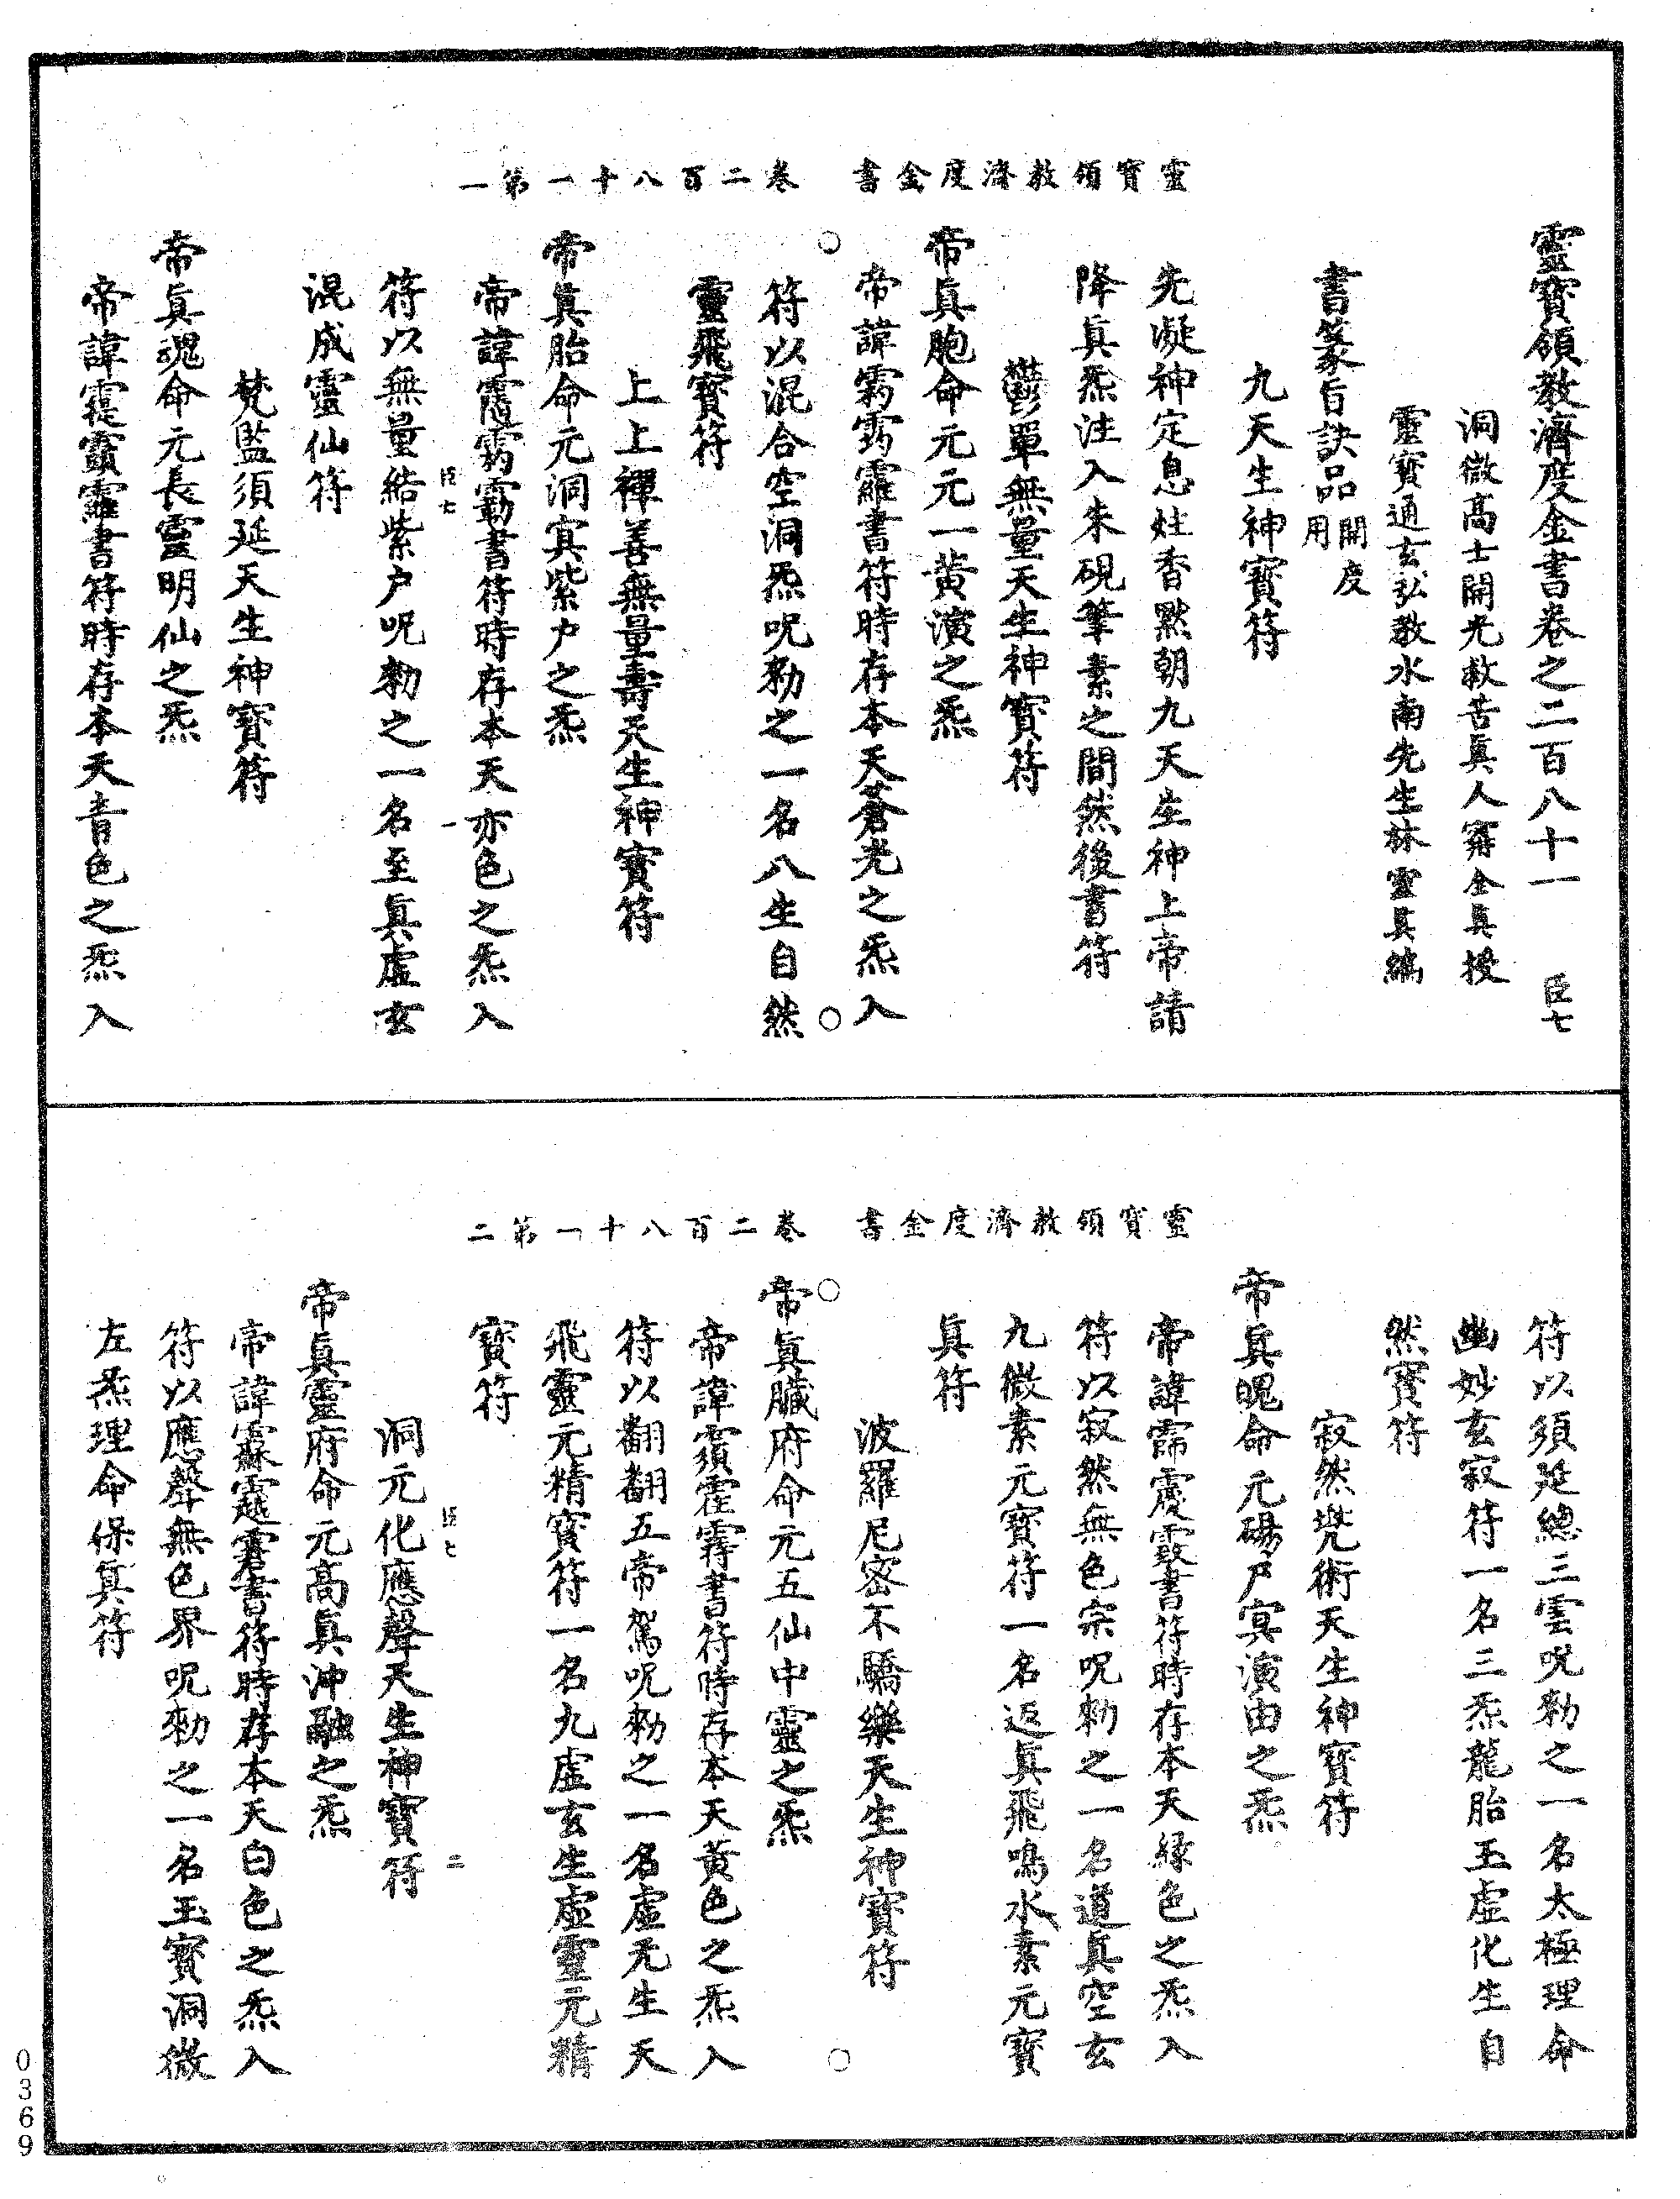 靈寶領教濟度金書卷之二百八十一　臣七
洞微高士開光救苦眞人寗全眞授
靈寶通玄弘教水南先生林靈眞編
書篆旨訣品開度用
九天生神寶符
先凝神定息炷香默朝九天生神上帝請
降眞炁注入朱硯筆素之間然後書符
鬱單無量天生神寶符
帝眞胞命元元一黃演之炁
帝諱書符時存本天蒼光之炁入
符以混合空洞炁呪勑之一名八生自然
靈飛寶符
上上禪善無量壽天生神寶符
帝眞胎命元洞冥紫戶之炁
帝諱書符時存本天亦色之炁入
符以無量結紫戶呪勑之一名至眞虛玄
混成靈仙符
梵監須延天生神寶符
帝眞魂命元長靈明仙之炁
帝諱書符時存本天青色之炁入
靈寶領教濟度金書　卷二百八十一第一
臣七　一
符以須延總三雲呪勑之一名太極理命
幽妙玄寂符一名三炁龍胎玉虛化生自
然寶符
寂然兠術天生神寶符
帝眞魄命元碭尸冥演由之炁
帝諱書符時存本天綠色之炁入
符以寂然無色宗呪勑之一名道眞空玄
九微素元寶符一名返眞飛鳴水素元寶
眞符
波羅尼密不驕樂天生神寶符
帝眞臟府命元五仙中靈之炁
帝諱書符時存本天黃色之炁入
符以翻翻五帝駕呪勑之一名虛无生天
飛靈元精寶符一名九虛玄生虛靈元精
寶符
洞元化應聲天生神寶符
帝眞靈府命元高眞沖融之炁
帝諱書符時存本天白色之炁入
符以應聲無色界呪勑之一名玉寶洞微
左炁理命保眞符
靈寶領教濟度金書　卷二百八十一第二
臣七　二
0369